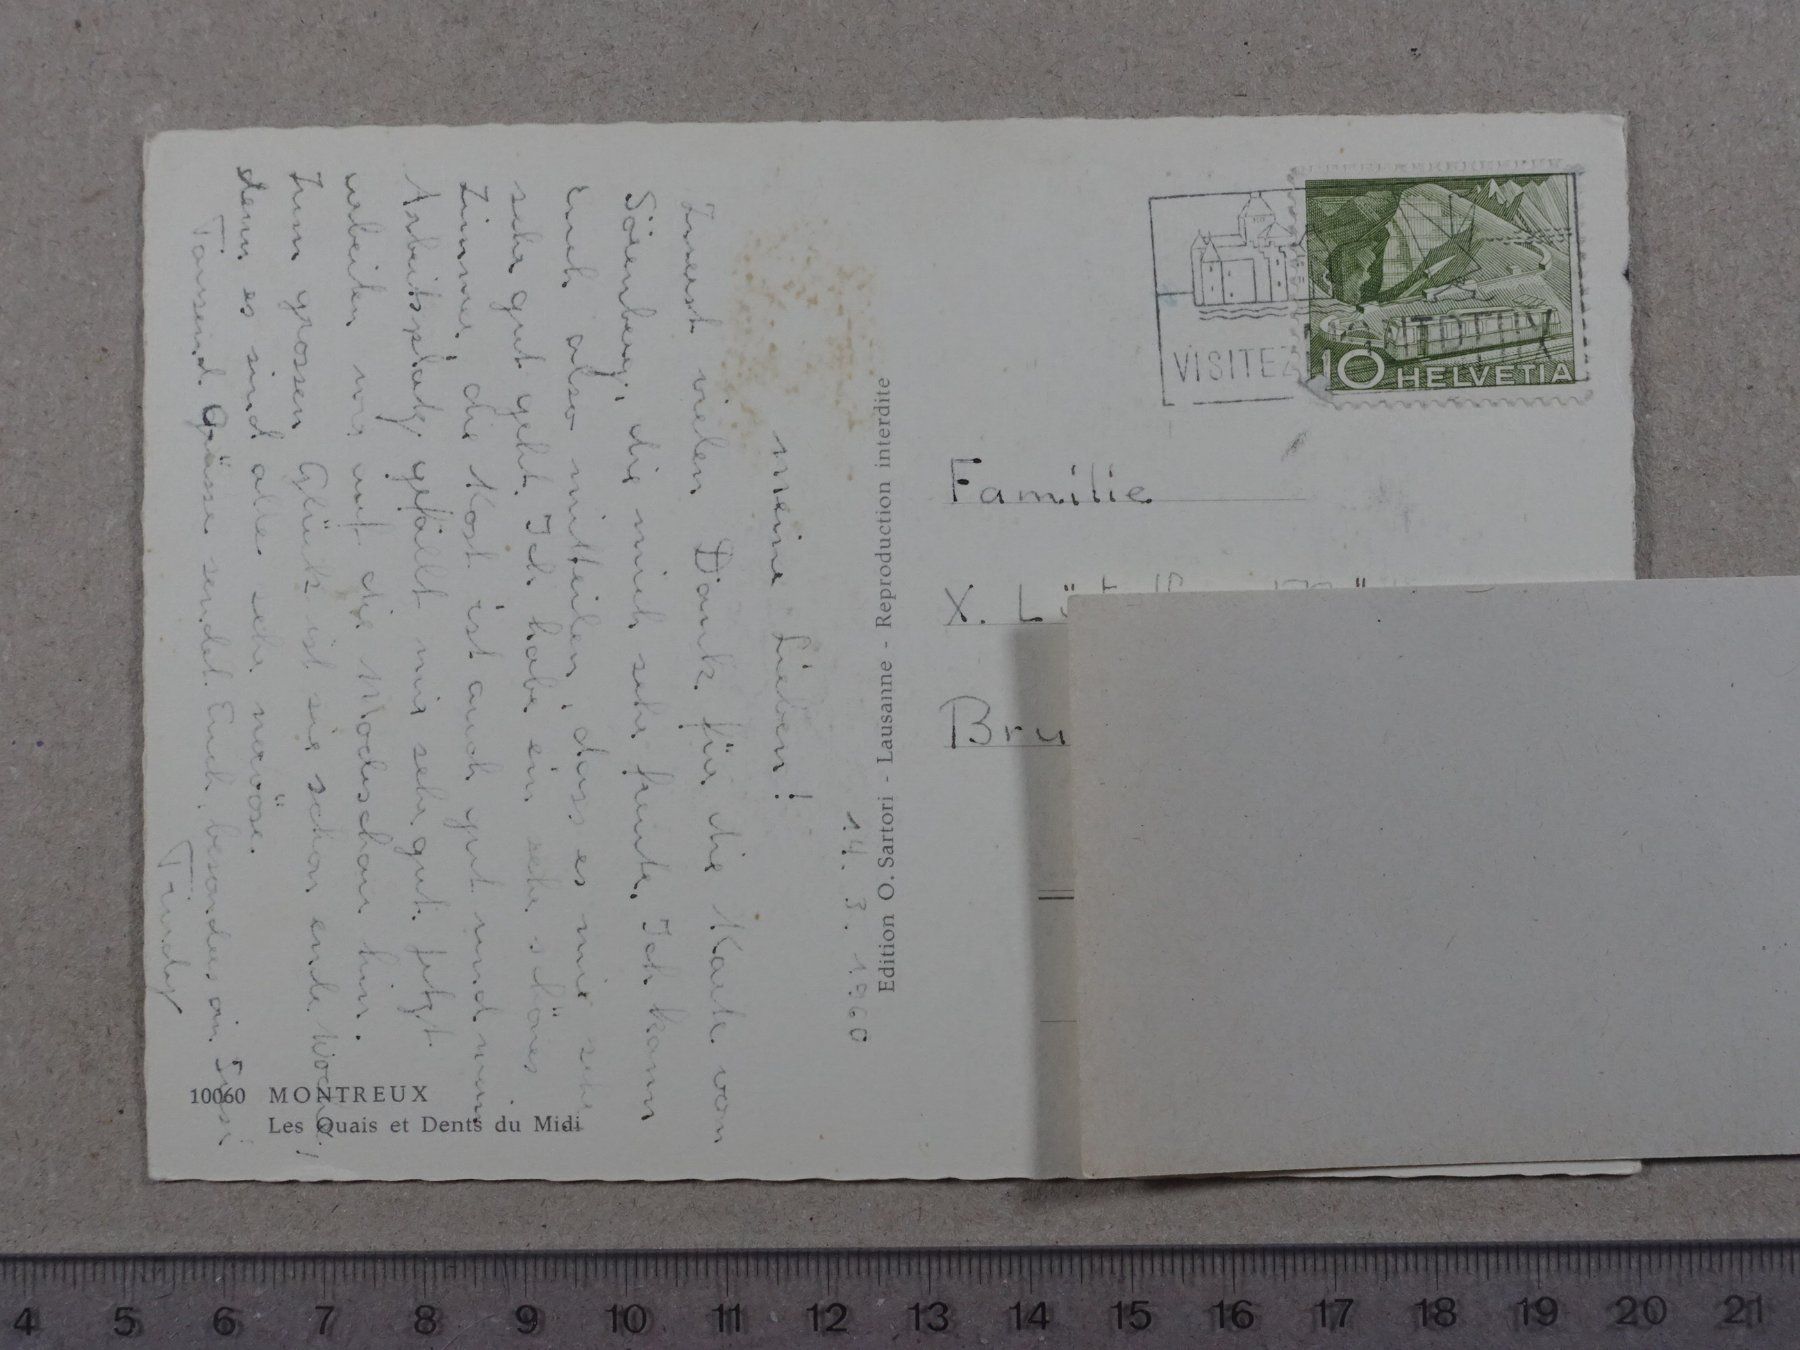 14. 3. 1960
Meine Lieben!
Zuerst vielen Dank für die Karte von
Sörenberg, die mich sehr freute. Ich kann
Euch also mitteilen, dass es mir sehr
sehr gut geht. Ich habe ein sehr schönes
Zimmer, die Kost ist auch gut und mein
Arbeitsplatz gefällt mir sehr gut. Jetzt
arbeiten wir auf die Modeschau hin.
Zum grossen Glück ist sie schon ende Woche!
denn es sind alle sehr nervöse.
Tausend Grüsse sendet Euch, besonders an
Edition O. Sartori - Lausanne - Reproduction interdite
10060 MONTREUX
Les Quais et Dents du Midi
VISITEZ
10 HELVETIA
Familie
X.
Bru
4 5 6 7 8 9 10 11 12 13 14 15 16 17 18 19 20 21